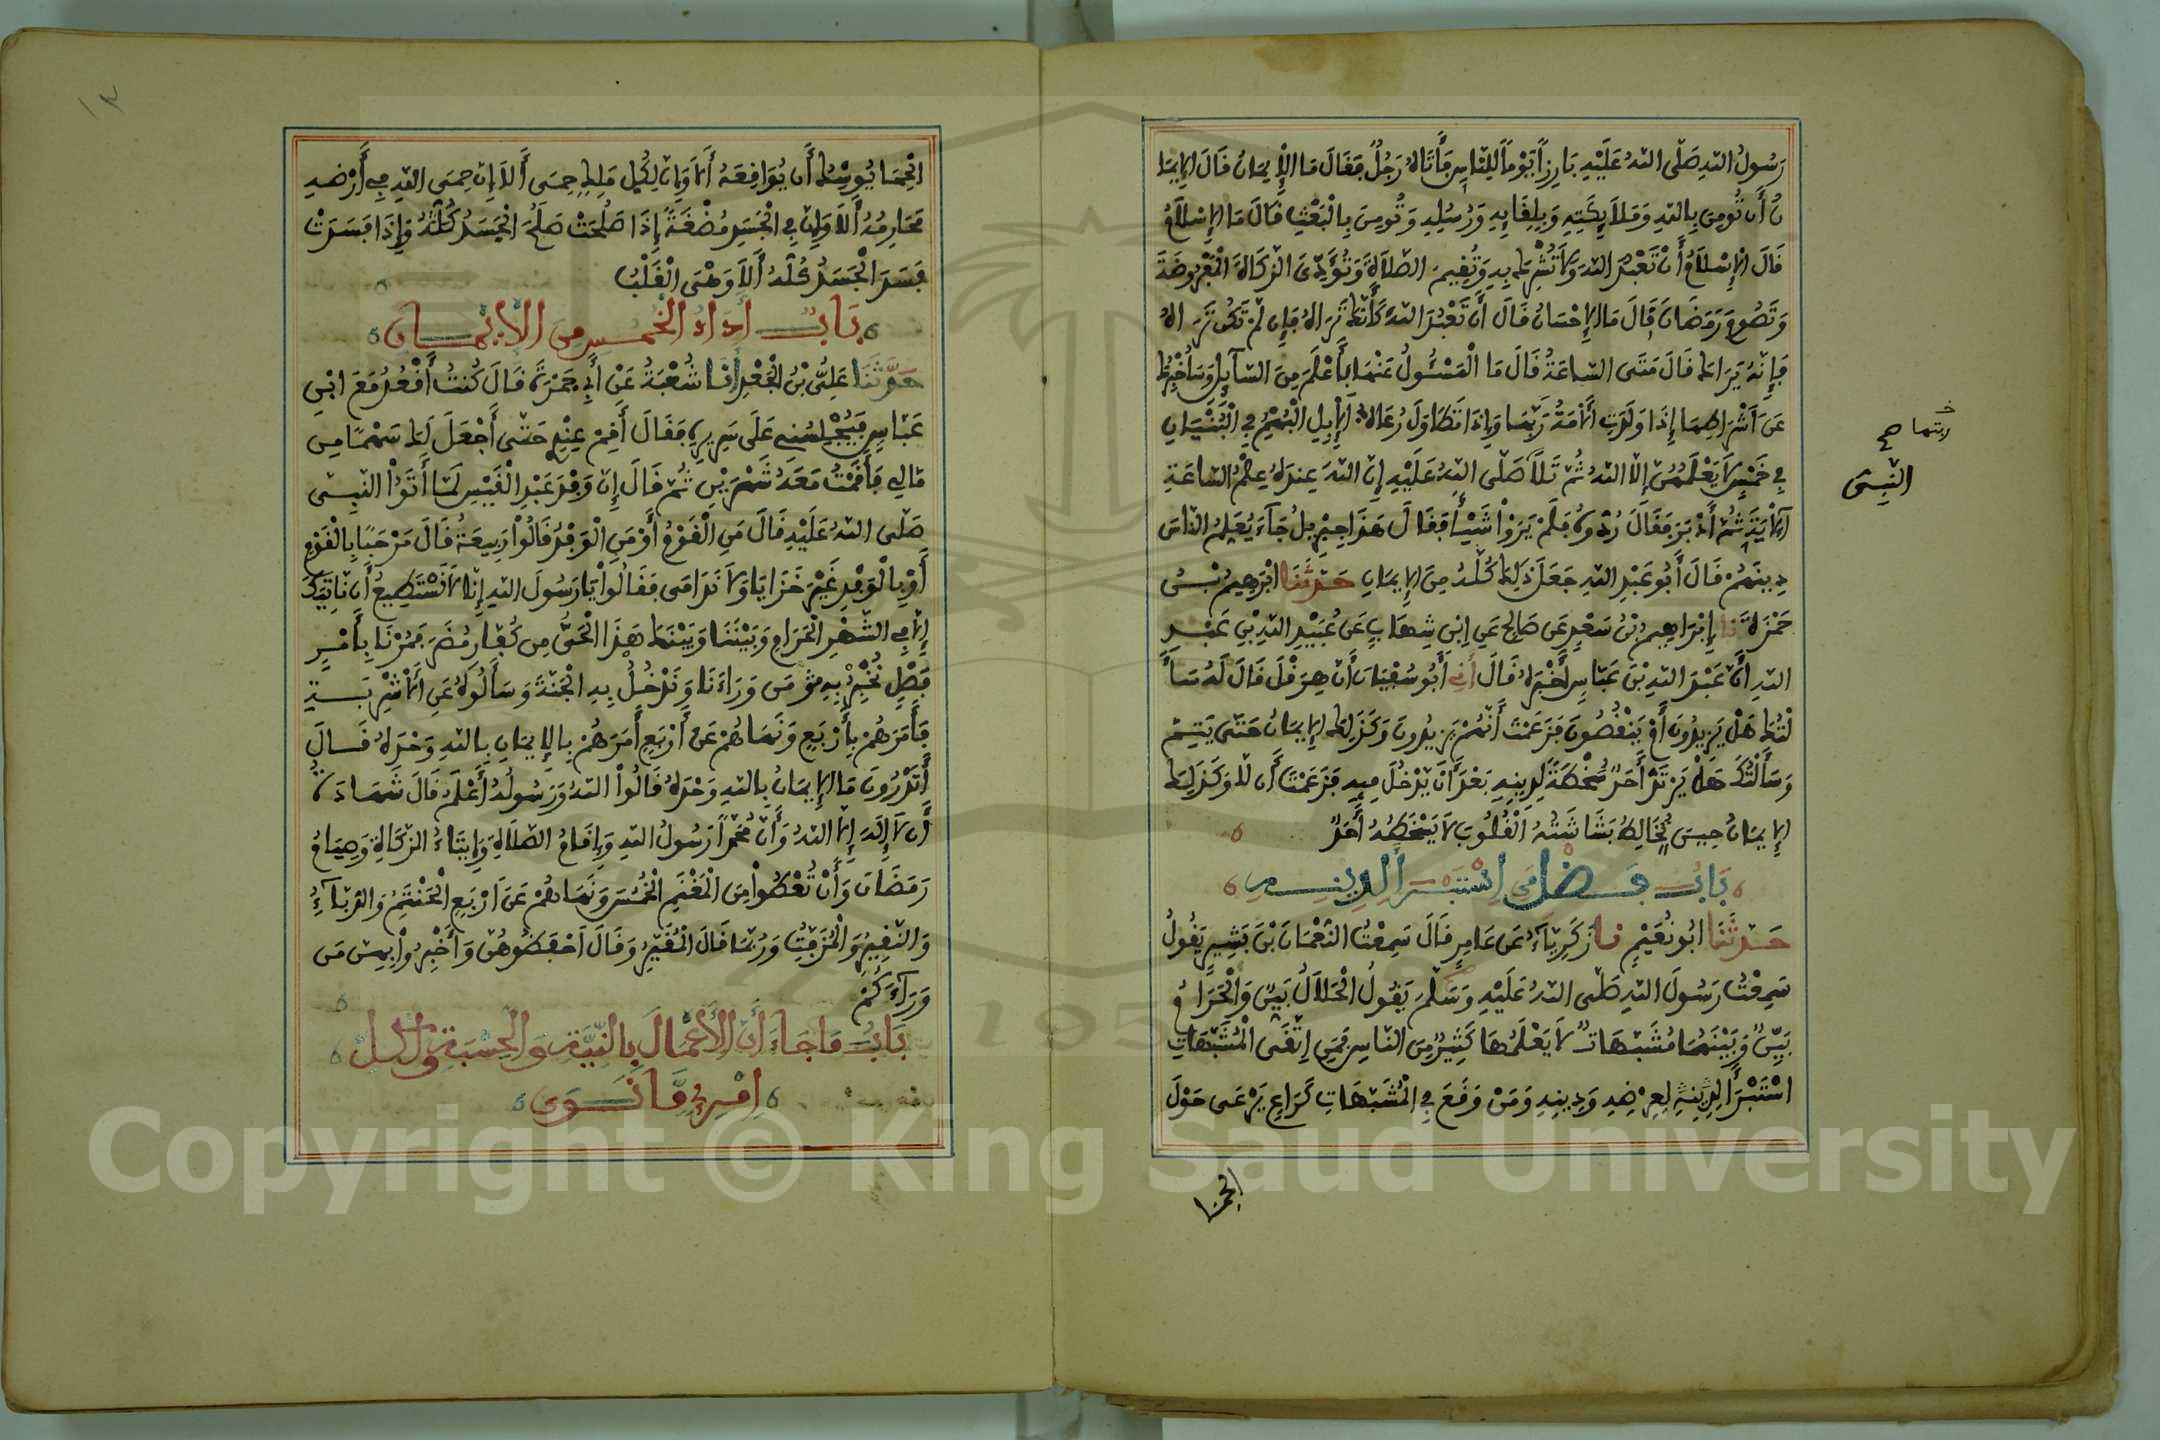 رَسُولُ اللهِ صَلّى اللهُ عَلَيْهِ بَارِزاً يَوْماً لِلنّاسِ فَأَتَاهُ رَجُلٌ فَقَالَ مَا الْإِيمَانُ قَالَ الإِيمَا
نُ أَن تُومِنَ بِاللهِ وَمَلَايِكَتِهِ وَبِلِقَايِهِ وَرُسُلِهِ وَتُومِنَ بِالْبَعْثِ قَالَ مَا الإِسْلَامُ
قَالَ الْإِسْلَامُ أَنْ تَعْبُدَ اللهَ وَلَا تُشْرِكَ بِهِ وَتُقِيمَ الصَّلَاةَ وَتُؤَدِّىَ الزَكَاةَ الْمَفْرُوضَةَ
وَتَصُومَ رَمَضَانَ قَالَ مَا الإِحْسَانُ قَالَ أَن تَعْبُدَ اللهَ كَأَنّكَ تَرَاهُ فَإِن لَمْ تَكُن تَرَاهُ
فَإِنّهُ يَرَاكَ قَالَ مَتَى السّاعَةُ قَالَ مَا الْمَسْئُولُ عَنْهَا بِأَعْلَمَ مِنَ السّآيِلِ وَسَأُخْبِرُكَ
عَنَ اشْرَاطِهَا إِذَا وَلَدَتِ الَامَةُ رَبّهَا وَإِذَا تَطَاوَلَ رُعَاةُ الْإِبِلِ الْبُهْمُ فِي الْبُنْيَانِ
فِي خَمْسٍ لَا يَعْلَمُهُنّ إِلّا اللهُ ثُمّ تَلَا صَلّى اللهُ عَلَيْهِ إِنّ اللهَ عِندَهُ عِلْمُ السّاعَةِ
الَايَةَ ثُمّ أَدْبَرَ فَقَالَ رُدُّوهُ فَلَمْ يَرَوْا شَيْـًٔا فَقَالَ هَذَا جِبْرِيلُ جَآءَ يُعَلِّمُ النّاسَ
دِينَهُمْ قَالَ أَبُو عَبْدِ اللهِ جَعَلَ ذَلِكَ كُلّهُ مِنَ الإِيمَانِ حَدّثَنَا ابْرَهِيمُ بْنُ
حَمْزَةَ نَا إِبْرَاهِيمُ بْنُ سَعْدٍ عَن صَالِحٍ عَنِ ابْنِ شِهَابٍ عَن عُبَيْدِ اللهِ بْنِ عَبْدِ
اللهِ أَنّ عَبْدَ اللهِ بْنَ عَبّاسٍ أَخْبَرَهُ قَالَ أَنِي أَبُو سُفْيَانَ أَنّ هِرَقْلَ قَالَ لَهُ سَأَ
لْتُكَ هَلْ يَزِيدُونَ أَمْ يَنْقُصُونَ فَزَعَمْتَ أَنّهُمْ يَزِيدُونَ وَكَذَلِكَ الإِيمَانُ حَتّى يَتِمّ
وَسَأَلْتُكَ هَلْ يَرْتَدّ أَحَدٌ سُخْطَةً لِدِينِهِ بَعْدَ أَنْ يَدْخُلَ فِيهِ فَزَعَمْتَ أَن لّا وَكَذَلِكَ
الإِيمَانُ حِينَ تُخَالِطُ بَشَاشَتُهُ الْقُلُوبَ لَا يَسْخَطُهُ أَحَدٌ
بَابُ فَضْلِ مَنِ اسْتَبْرَأَ لِدِينِهِ
حَدّثَنَا ابُو نُعَيْمٍ نَا زَكَرِيّآءُ عَن عَامِرٍ قَالَ سَمِعْتُ النّعْمَانَ بْنَ بَشِيرٍ يَقُولُ
سَمِعْتُ رَسُولَ اللهِ صَلّى اللهُ عَلَيْهِ وَسَلّمَ يَقُولُ الْحَلَالُ بَيِّنٌ وَالْحَرَامُ
بَيِّنٌ وَبَيْنَهُمَا مُشَبّهَاتٌ لَا يَعْلَمُهَا كَثِيرٌ مِنَ النّاسِ فَمَنِ اتّقَى الْمُشَبّهَاتِ
اسْتَبْرَأَ لِدِينِهِ لِعِرْضِهِ وَدِينِهِ وَمَنْ وَقَعَ فِي الْمُشَبّهَاتِ كَرَاعٍ يَرْعَى حَوْلَ
ربتها صح
النّبِىّ
الحما
١٣
الْحِمَا يُوشِكُ أَن يُوَاقِعَهُ أَلَا وَإِنّ لِكُلِّ مَلِكٍ حِمَى أَلَا إِنّ حِمَى اللهِ فِي أَرْضِهِ
مَحَارِمُهُ أَلَا وَإِنّ فِي الْجَسَدِ مُضْغَةً إِذَا صَلُحَتْ صَلُحَ الْجَسَدُ كُلّهُ وَإِذَا فَسَدَتْ
فَسَدَ الْجَسَدُ كُلّهُ أَلَا وَهْىَ الْقَلْبُ
بَابُ أدَاءُ الْخُمُسِ مِنَ الْإِيمَانِ
حَدّثَنَا عَلِىُّ بْنُ الْجَعْدِ أَنَا شُعْبَةُ عَنْ أَبِي جَمْرَةَ قَالَ كُنتُ أَقْعُدُ مَعَ ابْنِ
عَبّاسٍ فَيُجْلِسُنِي عَلَى سَرِيرِهِ فَقَالَ أَقِمْ عِندِي حَتّى أَجْعَلَ لَكَ سَهْمًا مِن
مَالِي فَأَقَمْتُ مَعَهُ شَهْرَيْنِ ثُمّ قَالَ إِنّ وَفْدَ عَبْدِ الْقَيْسِ لَمّا أَتَوْا النّبِىّ
صَلّى اللهُ عَلَيْهِ قَالَ مَنِ الْقَوْمُ أَوْ مَنِ الْوَفْدُ قَالُوا رَبِيعَةُ قَالَ مَرْحَبًا بِالْقَوْمِ
أَوْ بِالْوَفْدِ غَيْرَ خَزَايَا وَلَا نَدَامَى فَقَالُوا يَا رَسُولَ اللهِ إِنّا لَا نَسْتَطِيعُ أَن نّاتِيَكَ
إِلّا فِي الشّهْرِ الْحَرَامِ وَبَيْنَنَا وَبَيْنَكَ هَذَا الْحَىُّ مِن كُفّارِ مُضَرَ فَمُرْنَا بِأَمْرٍ
فَصْلٍ نُخْبِرْ بِهِ مَن وَرَاءَنَا وَنَدْخُلُ بِهِ الْجَنّةَ وَسَأَلُوهُ عَنِ الَاشْرِبَةِ
فَأَمَرَهُمْ بِأَرْبَعٍ وَنَهَاهُمْ عَنْ أَرْبَعٍ أَمَرَهُمْ بِالإِيمَانِ بِاللهِ وَحْدَهُ قَالَ
أَتَدْرُونَ مَا الإِيمَانُ بِاللهِ وَحْدَهُ قَالُوا اللهُ وَرَسُولُهُ أَعْلَمُ قَالَ شَهَادَةُ
أَن لَا إِلَهَ إِلّا اللهُ وَأَنّ مُحَمّداً رَسُولُ اللهِ وَإِقَامُ الصّلَاةِ وَإِيتَاءُ الزّكَاةِ وَصِيَامُ
رَمَضَانَ وَأَنْ تُعْطُوا مِنَ الْمَغْنَمِ الْخُمُسَ وَنَهَاهُمْ عَنَ ارْبَعٍ الْحَنْتَمِ وَالدّبّآءِ
وَالنّقِيرِ وَالْمُزَفّتِ وَرُبّمَا قَالَ الْمُقَيّرِ وَقَالَ احْفَظُوهُنّ وَأَخْبِرُوا بِهِنّ مَن
وَرَآءَكُمْ
بَابُ مَا جَاءَ أَنّ الْأَعْمَالَ بِالنِّيَّةِ وَالْحِسْبَةِ وَلِكُلِّ
امْرِئٍ مَّا نَوَى
Copyright © King Saud University
195